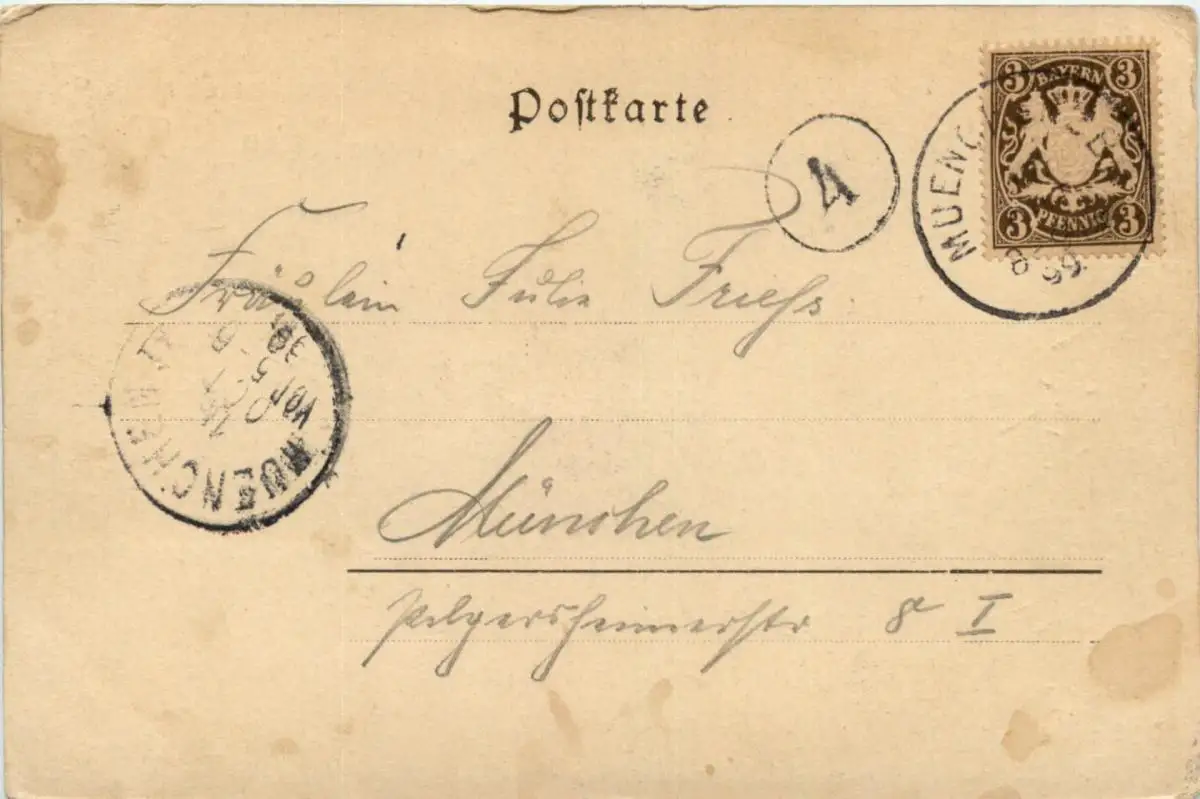 Postkarte
3 BAYERN 3
3 PFENNIG 3
4
MUENC
8 99
Fräulein Julie Friess
MUENCHEN II
VOR 5-6
München
Pilgersheimerstr 8 I